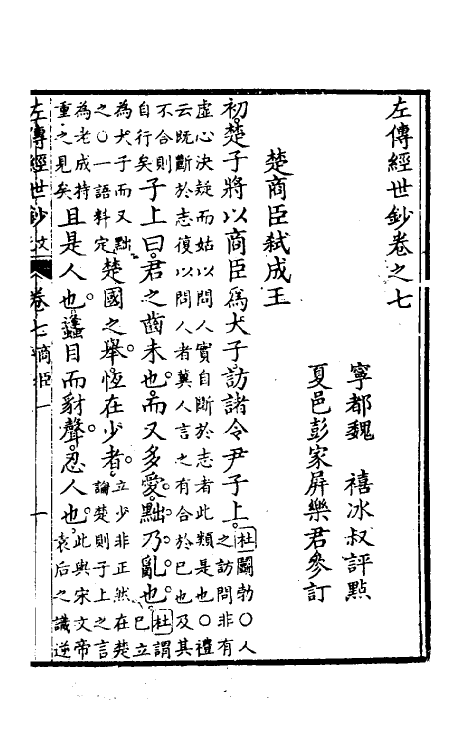 左傳經世鈔卷之七
寧都魏　禧冰叔評點
夏邑彭家屏樂君參訂
楚商臣弒成王
初楚子將以商臣爲大子訪諸令尹子上。杜鬭勃〇人
之訪問非有
虛心決疑而姑以問人實自斷於志者此類是也〇禮
云既斷於志復以問人者冀人言之有合於己也及其
不合則
自行矣
子上曰。君之齒未也。而又多愛。黜乃亂也。杜謂
已立
為大子而又黜
之〇一語料定
楚國之舉。恆在少者。立少非正然在楚
論楚則子上之言
為老成持
重之見矣
且是人也。蠭目而豺聲。忍人也。此與宋文帝
袁后之識逆
左傳經世鈔 文 卷七 商臣 一